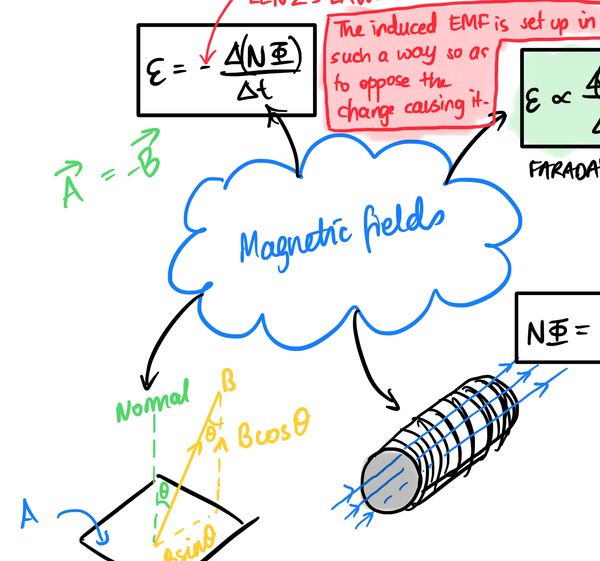 LENZ'S LAW
The induced EMF is set up in
such a way so as
to oppose the
change causing it.
ε = - Δ(NΦ)
Δt
ε ∝
FARADA
A⃗ = -B⃗
Magnetic fields
NΦ =
Normal
B
θ
B cos θ
θ
A
B sin θ